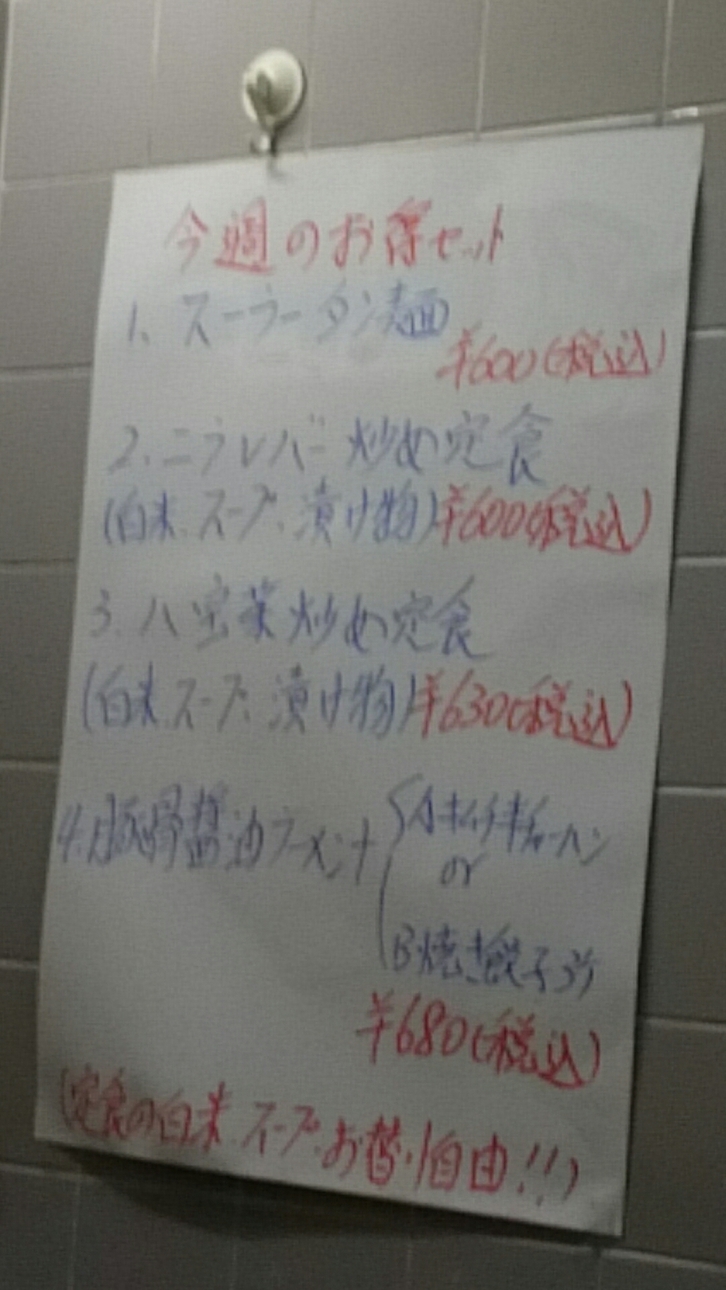 今週のお得セット
1、スーラータン麺
¥600(税込)
2、ニラレバー炒め定食
(白米、スープ、漬け物)¥600(税込)
3、八宝菜炒め定食
(白米、スープ、漬け物)¥630(税込)
4、豚骨醤油ラーメン+
Aキムチチャーハン
or
B焼き餃子3ケ
¥680(税込)
(定食の白米、スープ、お替り自由!!)